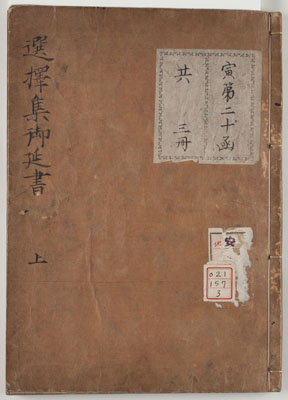 選擇集御延書
上
寅第二十函
共三冊
安
021
157
3